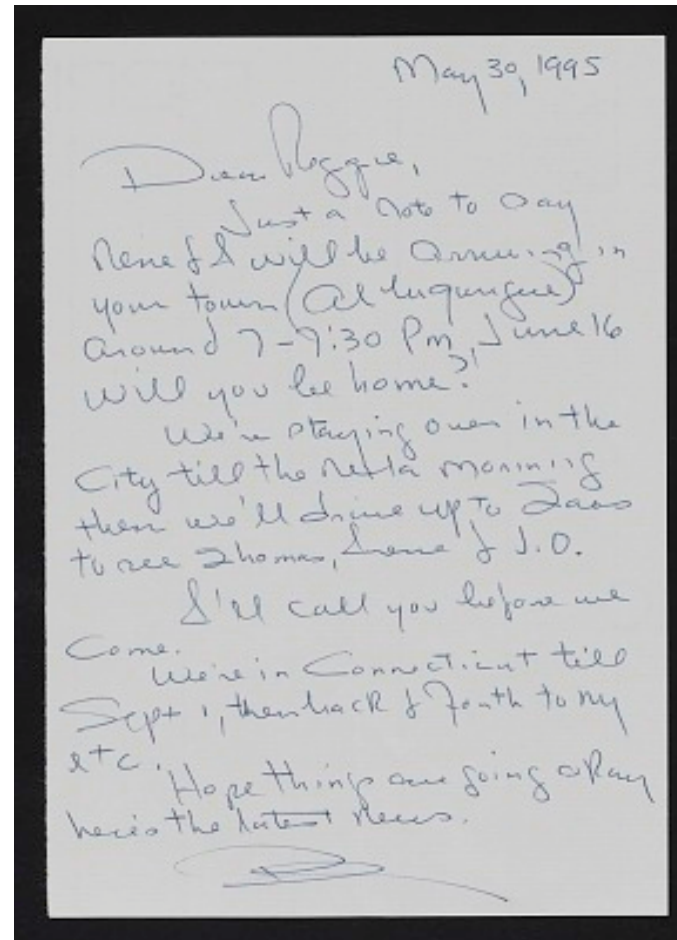 May 30, 1995
Dear Reggie,
Just a note to say
Rene & I will be arriving in
your town (Albuquerque)
around 7-7:30 Pm, June 16
will you be home?
We're staying over in the
City till the next morning
then we'll drive up to Taos
to see Thomas, Irene & J.O.
I'll call you before we
Come.
We're in Connecticut till
Sept 1, then back & forth to NY
etc.
Hope things are going okay
here's the latest news.